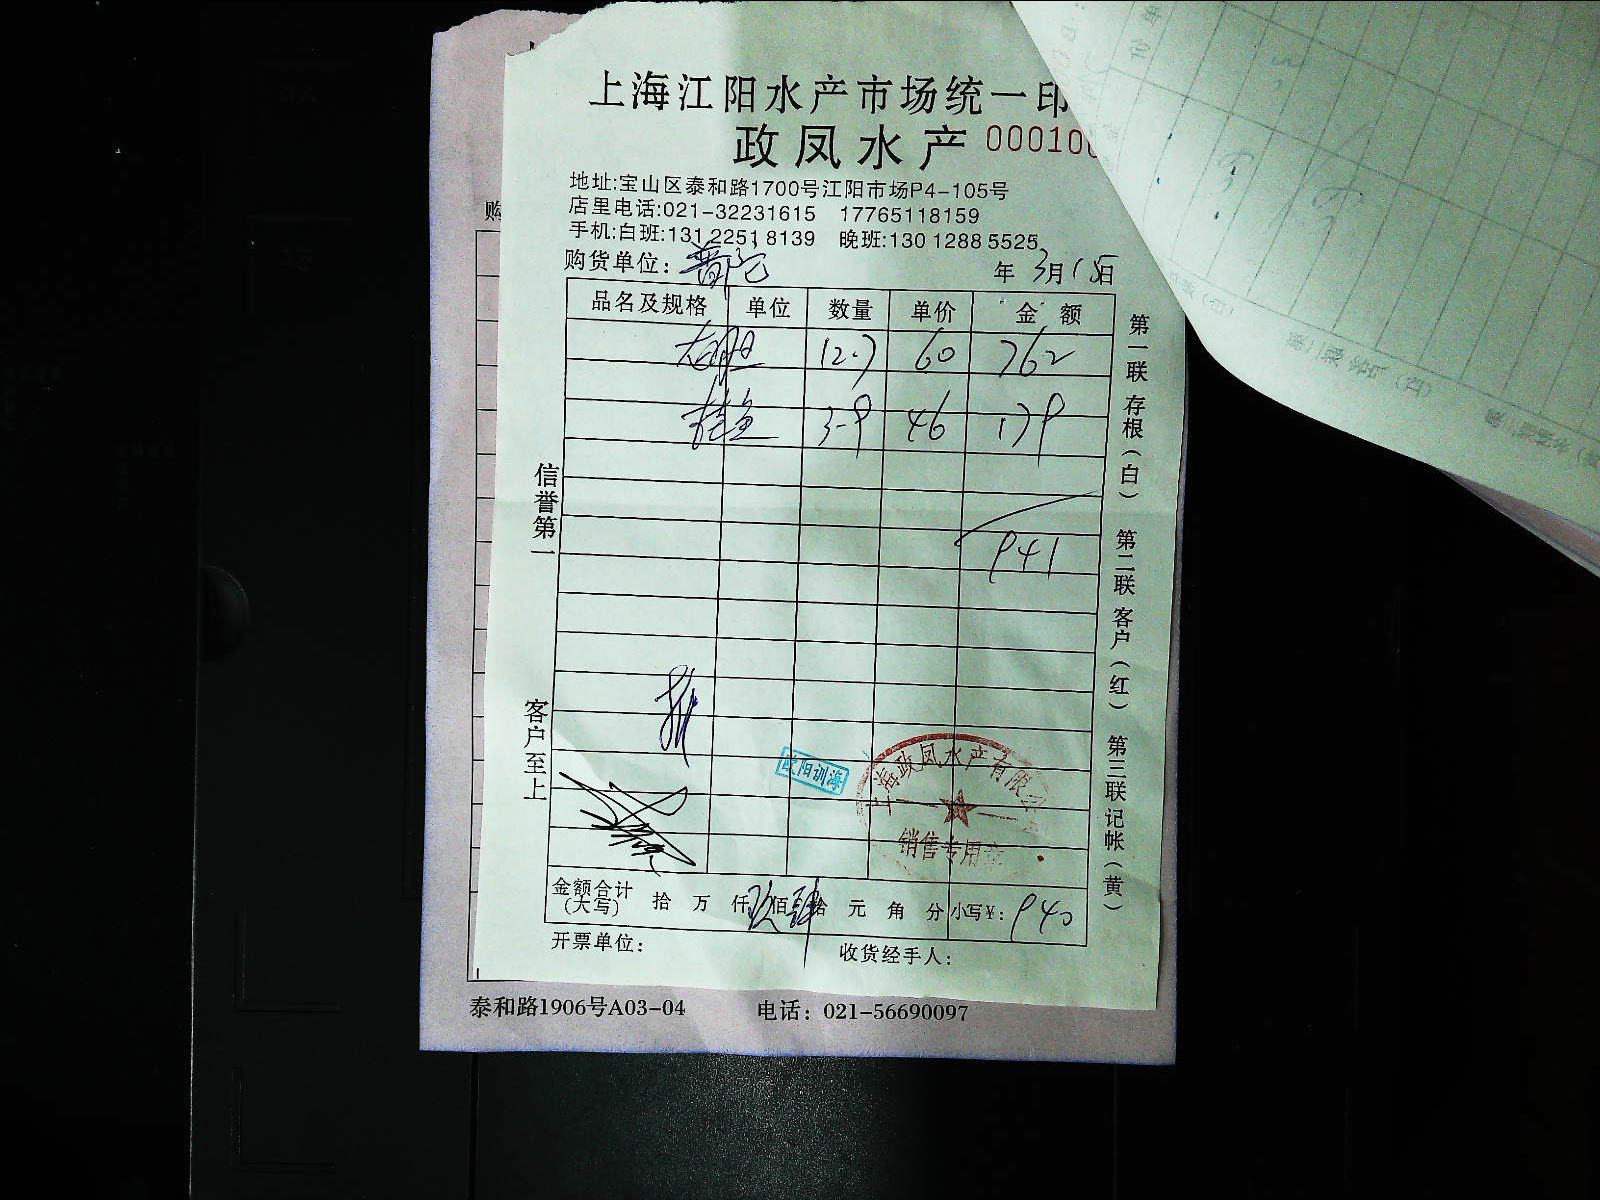 上海江阳水产市场统一印
政凤水产 000100
地址:宝山区泰和路1700号江阳市场P4-105号
店里电话:021-32231615 17765118159
手机:白班:131 2251 8139 晚班:130 1288 5525
购货单位: 普陀 年 3月15日
品名及规格 单位 数量 单价 金额
12.7 60 762
桂鱼 3.9 46 179
941
金额合计(大写) 拾 万 仟 玖佰 肆拾 元 角 分 小写¥: 940
开票单位: 收货经手人:
信誉第一
客户至上
第一联 存根(白) 第二联 客户(红) 第三联 记帐(黄)
欧阳训海
上海政凤水产有限公
销售专用章
购
泰和路1906号A03-04 电话: 021-56690097